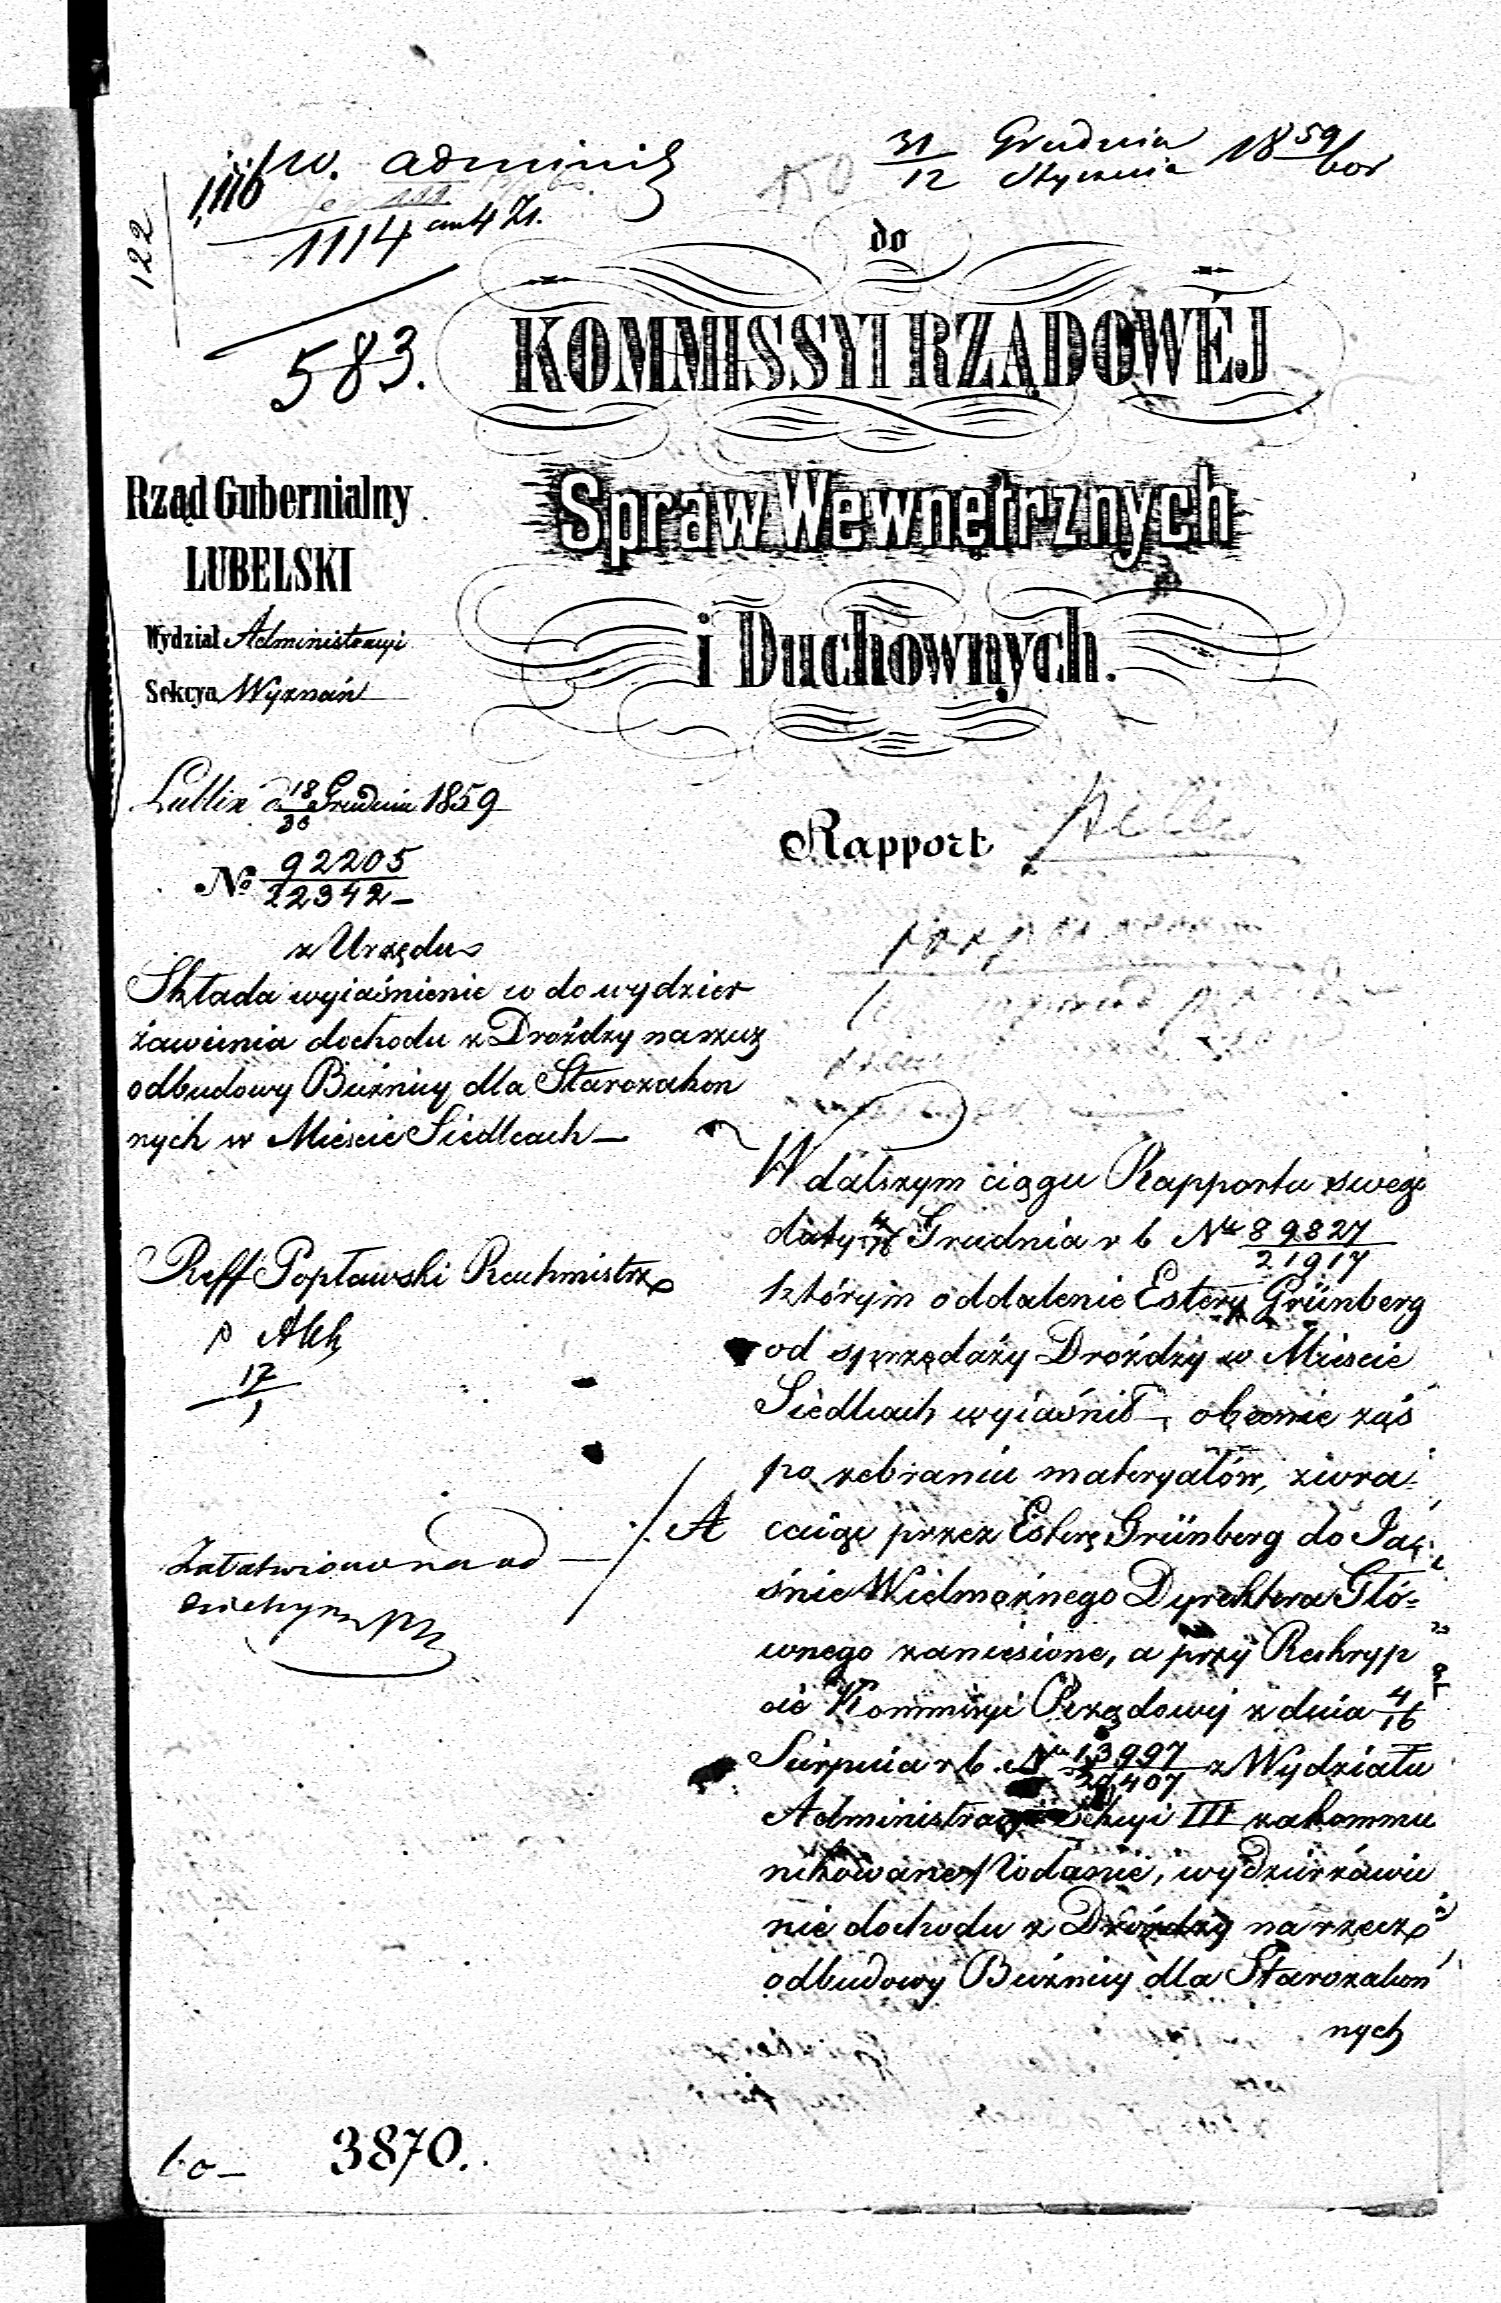 w. Adminis
31 Grudnia 1859
12 Stycznia
122
1114
583.
do
KOMMISSYI RZĄDOWÉJ
Spraw Wewnętrznych
i Duchownych.
Rząd Gubernialny
LUBELSKI
Wydział Administracyi
Sekcya Wyznań
Lublin d 18/30 Grudnia 1859
No 92205
22342
z Urzędu
Składa wyiaśnienie w do wydzier
żawienia dochodu z Drożdży na rzecz
odbudowy Bużnicy dla Starozakon
nych w Mieście Siedlcach
Reff Popławski Rachmistrz
17
1
Załatwiono na od
Rapport
W dalszym ciągu Rapportu swego
daty 4/16 Grudnia r b No 89827
21917
którym oddalenie Estery Grünberg
od sprzedaży Drożdży w Mieście
Siedlcach wyiaśnił, obecnie zaś
po zebraniu materyałów, zwra
caiąc przez Esterę Grünberg do Ja
śnie Wielmożnego Dyrektora Głó=
wnego zaniesione, a przy Reskryp
cie Kommissyi Rządowéj z dnia 4/16
Sierpnia r b. No 13997 z Wydziału
20407
Administracyi Sekcyi III zakommu
nikowane Podanie, wydzierżawie
nie dochodu z Drożdży na rzecz
odbudowy Bużnicy dla Starozakon
nych
A
3870.